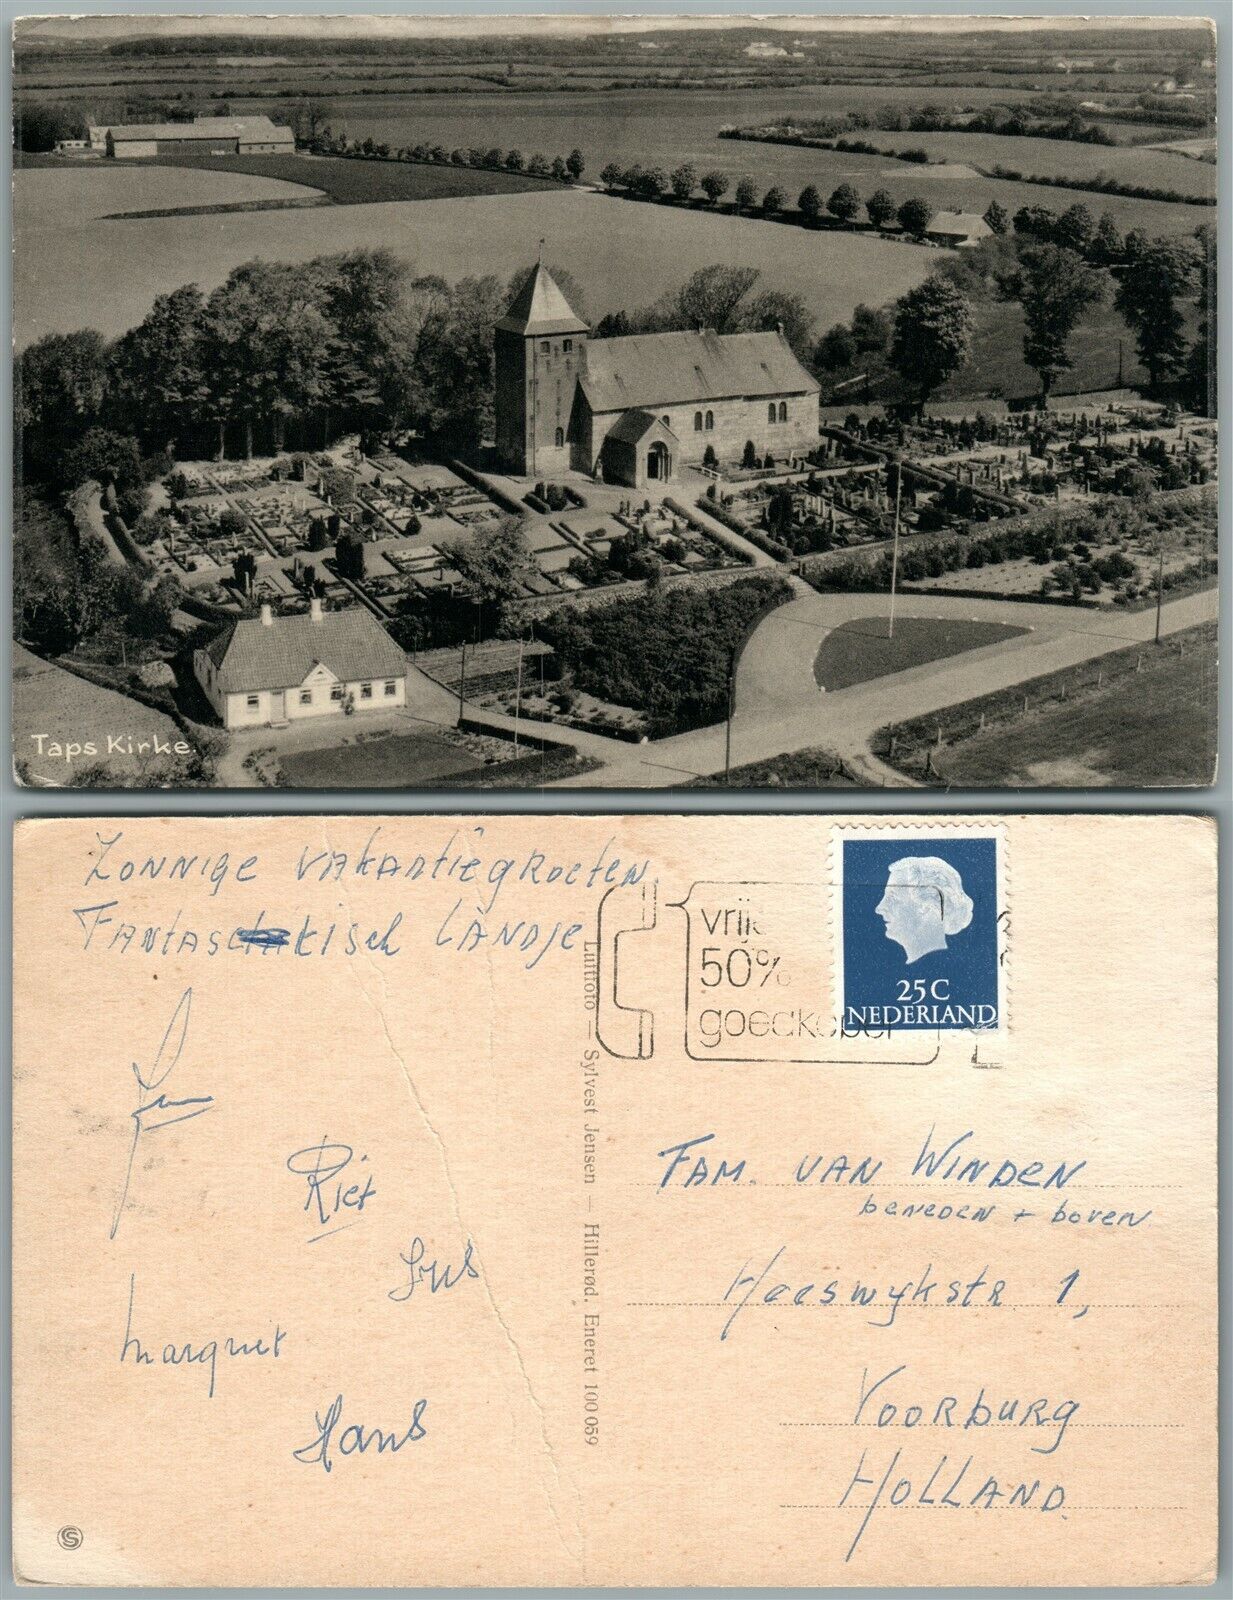 Taps Kirke
Zonnige vakantiegroeten.
Fantastisch landje
Riet
Margriet
Hans
Luftfoto — Sylvest Jensen — Hillerød. Eneret 100 059
vrij
50%
goedkoper
25 C
NEDERLAND
FAM. VAN WINDEN
beneden + boven
Heeswykstr. 1,
VOORBURG
HOLLAND.
S